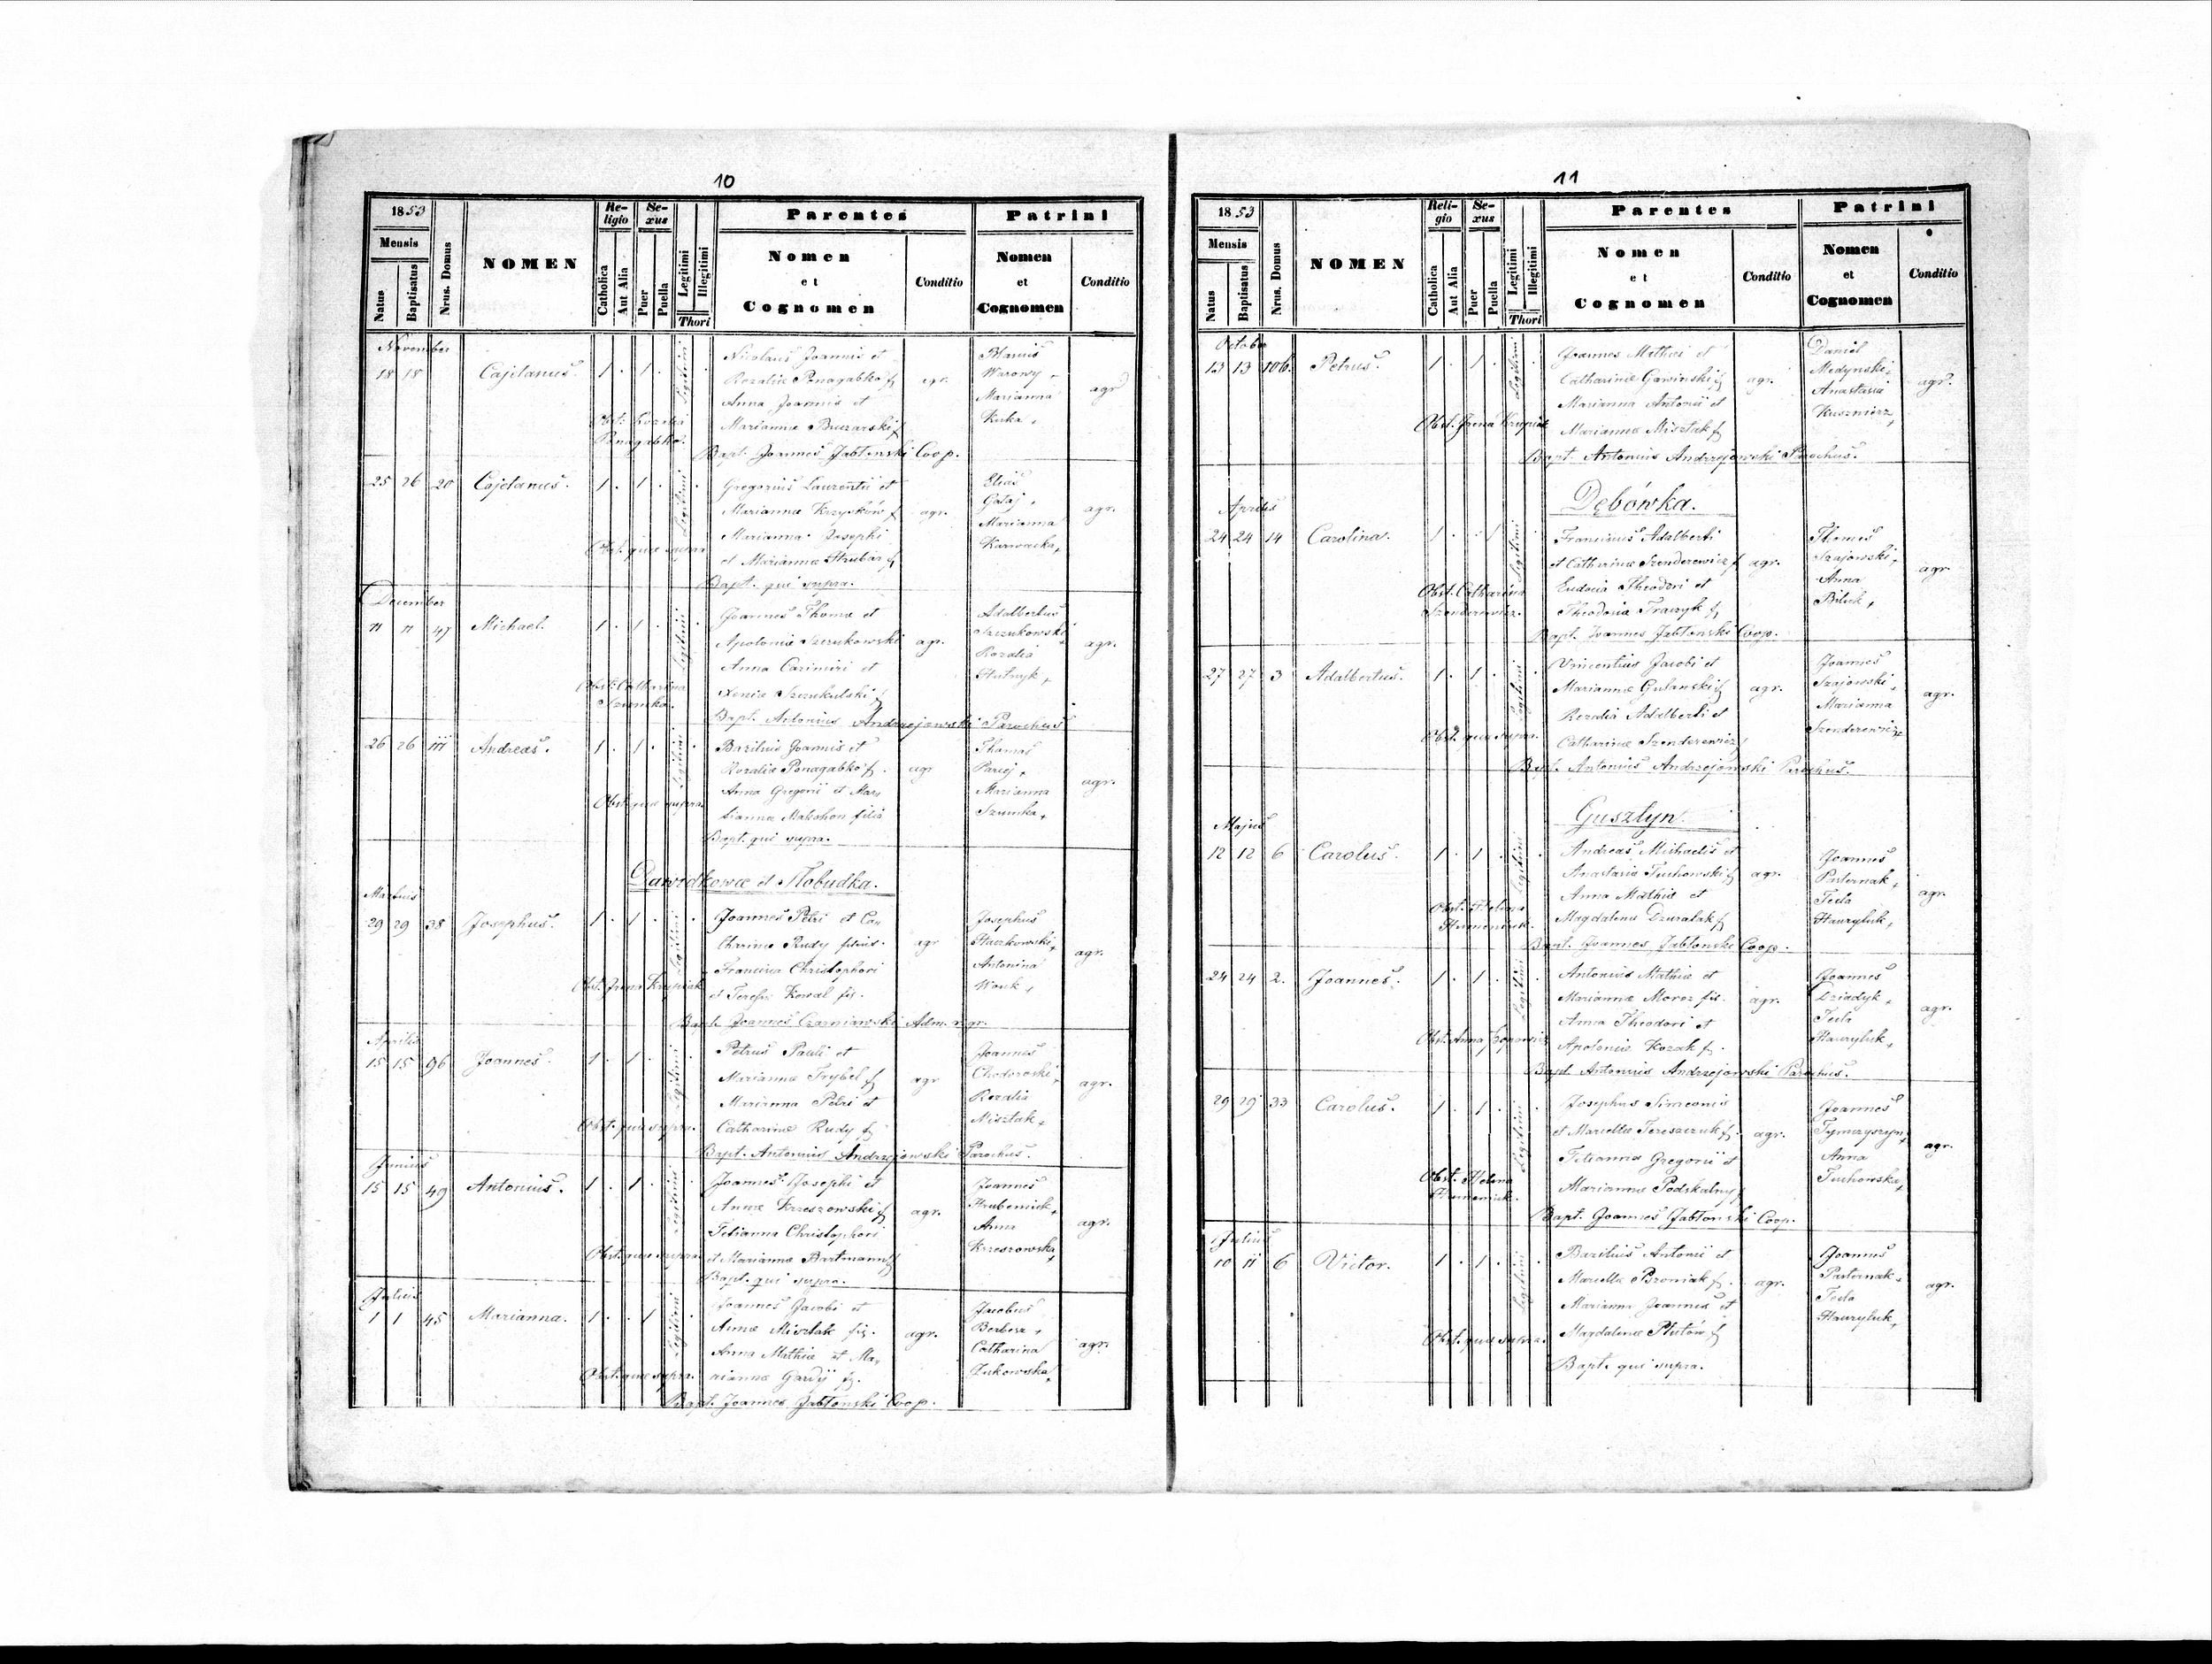 10
1853
Mensis
Natus
Baptisatus
Nrus. Domus
NOMEN
Religio
Catholica
Aut Alia
Sexus
Puer
Puella
Legitimi
Illegitimi
Thori
Parentes
Nomen
et
Cognomen
Conditio
Patrini
Nomen
et
Cognomen
Conditio
November
18 18 Cajetanus. 1 . 1 . Legitimi .
Nicolaus Joannis et
Rozaliæ Ponagabko f.
Anna Joannis et
Mariannæ Bucarski f.
agr.
Marianna
Kuka,
agr.
Obst. Rozalia
Ponagabko.
Bapt. Joannes Jabłonski Coop.
25 26 20 Cajetanus. 1 . 1 . Legitimi .
Gregorius Laurentii et
Mariannæ Krzysków f.
Marianna Josephi
et Mariannæ Hrubar f.
agr.
Elias
Gałaj,
Marianna
Karwacka,
agr.
Obst. quæ supra
Bapt. qui supra.
December
11 11 47 Michael. 1 . 1 . Legitimi
Joannes Thomæ et
Apoloniæ Szczukowski
Anna Cazimiri et
Xeniæ Szczukulski f.
agr.
Adalbertus
Szczukowski
Rozalia
Hutnyk,
agr.
Obst. Catharina
Szumka.
Bapt. Antonius Andrzejowski Parochus
26 26 111 Andreas. 1 . 1 . Legitimi .
Bazilius Joannis et
Rozaliæ Ponagabko f.
Anna Gregorii et Mar,
iannæ Makohon filia
agr
Thomas
Parcej,
Marianna
Szumka,
agr.
Obst. quæ supra.
Bapt. qui supra.
Dawidkowce et Słobudka.
Martius
29 29 38 Josephus. 1 . 1 . Legitimi .
Joannes Petri et Ca,
tharinæ Rudy filius.
Francisca Christophori
et Teresiæ Kowal fis.
agr
Josephus
Haczkowski,
Antonina
Wowk,
agr.
Obst. Irena Krupiak
Bapt. Joannes Czarniawski Adm. agr.
Aprilis
15 15 96 Joannes. 1 . 1 . Legitimi .
Petrus Pauli et
Mariannæ Trybel f.
Marianna Petri et
Catharinæ Rudy f.
agr
Joannes
Chodorowski,
Rozalia
Misztak,
agr.
Obst. quæ supra.
Bapt. Antonius Andrzejowski Parochus.
Junius
15 15 49 Antonius. 1 . 1 . Legitimi
Joannes Josephi et
Annæ Krzeszowski f.
Tetianna Christophori
et Mariannæ Bartmann f.
agr.
Joannes
Hrubeniuk,
Anna
Krzeszowska,
agr.
Obst. quæ supra.
Bapt. qui supra.
Julius
1 1 45 Marianna. 1 . . 1 Legitimi
Joannes Jacobi et
Annæ Misztak fis.
Anna Mathiæ et Ma,
riannæ Gardij f.
agr.
Jacobus
Berbesz,
Catharina
Zukowska,
agr.
Obst. quæ supra.
Bapt. Joannes Jabłonski Coop.
11
1853
Mensis
Natus
Baptisatus
Nrus. Domus
NOMEN
Religio
Catholica
Aut Alia
Sexus
Puer
Puella
Legitimi
Illegitimi
Thori
Parentes
Nomen
et
Cognomen
Conditio
Patrini
Nomen
et
Cognomen
Conditio
October
13 13 106. Petrus. 1 . 1 . Legitimi .
Joannes Mathæi et
Catharinæ Gawinski f.
Marianna Antonii et
Mariannæ Misztak f.
agr.
Daniel
Medynski,
Anastasia
Kusznierz,
agr.
Obst. Irena Krupiak
Bapt. Antonius Andrzejowski Parochus.
Dębówka.
Aprilis
24 24 14 Carolina. 1 . . 1 Legitimi
Franciscus Adalberti
et Catharinæ Szenderewicz f.
Eudocia Theodori et
Theodosia Traczyk f.
agr.
Thomas
Szajowski,
Anna
Biluk,
agr.
Obst. Catharina
Szenderewicz.
Bapt. Joannes Jabłonski Coop.
27 27 3 Adalbertus. 1 . 1 . Legitimi
Vincentius Jacobi et
Mariannæ Gulanski f.
Rozalia Adalberti et
Catharinæ Szenderewicz
agr.
Joannes
Szajowski,
Marianna
Szenderewicz,
agr.
Obst. quæ supra.
Bapt. Antonius Andrzejowski Parochus.
Gusztyn.
Majus
12 12 6 Carolus. 1 . 1 . Legitimi .
Andreas Michaelis et
Anastasiæ Tuchowski f.
Anna Mathiæ et
Magdalenæ Dzuralak f.
agr.
Joannes
Pasternak,
Tecla
Hauryluk,
agr.
Obst. Helena
Bapt. Joannes Jabłonski Coop.
24 24 2. Joannes. 1 . 1 . Legitimi .
Antonius Mathiæ et
Mariannæ Moroz fis.
Anna Theodori et
Apoloniæ Kozak f.
agr.
Joannes
Dziadyk,
Tecla
Hauryluk,
agr.
Obst. Anna
Bapt. Antonius Andrzejowski Parochus.
29 29 33 Carolus. 1 . 1 . Legitimi .
Josephus Simeonis
et Marcellæ Tereszczuk f.
Tetianna Gregorii et
Mariannæ Podskalny f.
agr.
Joannes
Tymczyszyn,
Anna
Tuchowska,
agr.
Obst. Helena
Bapt. Joannes Jabłonski Coop.
Julius
10 11 6 Victor. 1 . 1 . Legitimi .
Bazilius Antonii et
Marcellæ Broniak f.
Marianna Joannis et
Magdalenæ Plutów f.
agr.
Joannes
Pasternak,
Tecla
Hauryluk,
agr.
Obst. quæ supra.
Bapt. qui supra.